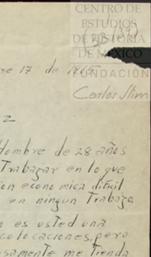 CENTRO DE
ESTUDIOS
DE HISTORIA
DE MÉXICO
FUNDACIÓN
Carlos Slim
re 17 de
z
Hombre de 28 años
Trabajar en lo que
ion economica dificil
en ningun Trabajo
es usted una
colocaciones, pero
samente me tienda